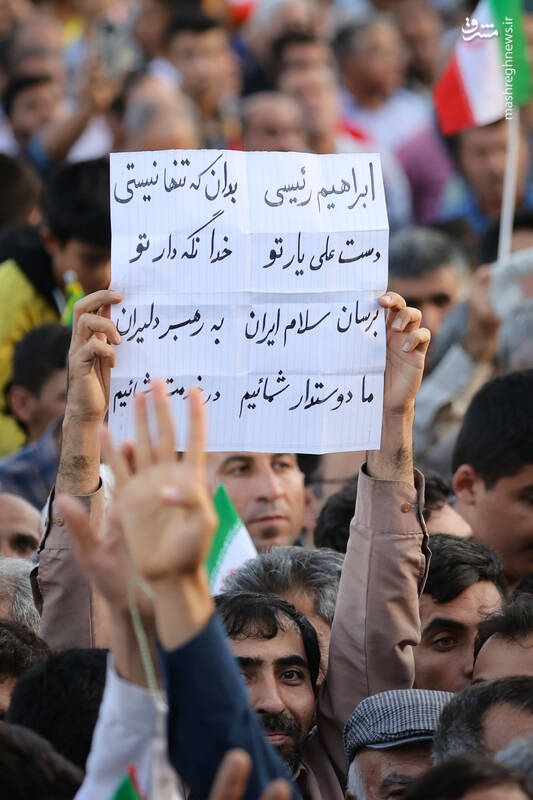 مشرق
mashreghnews.ir
ابراهیم رئیسی بدان که تنها نیستی
دست علی یار تو خدا نگه دار تو
برسان سلام ایران به رهبر دلیران
ما دوستدار شمائیم در خدمت شمائیم